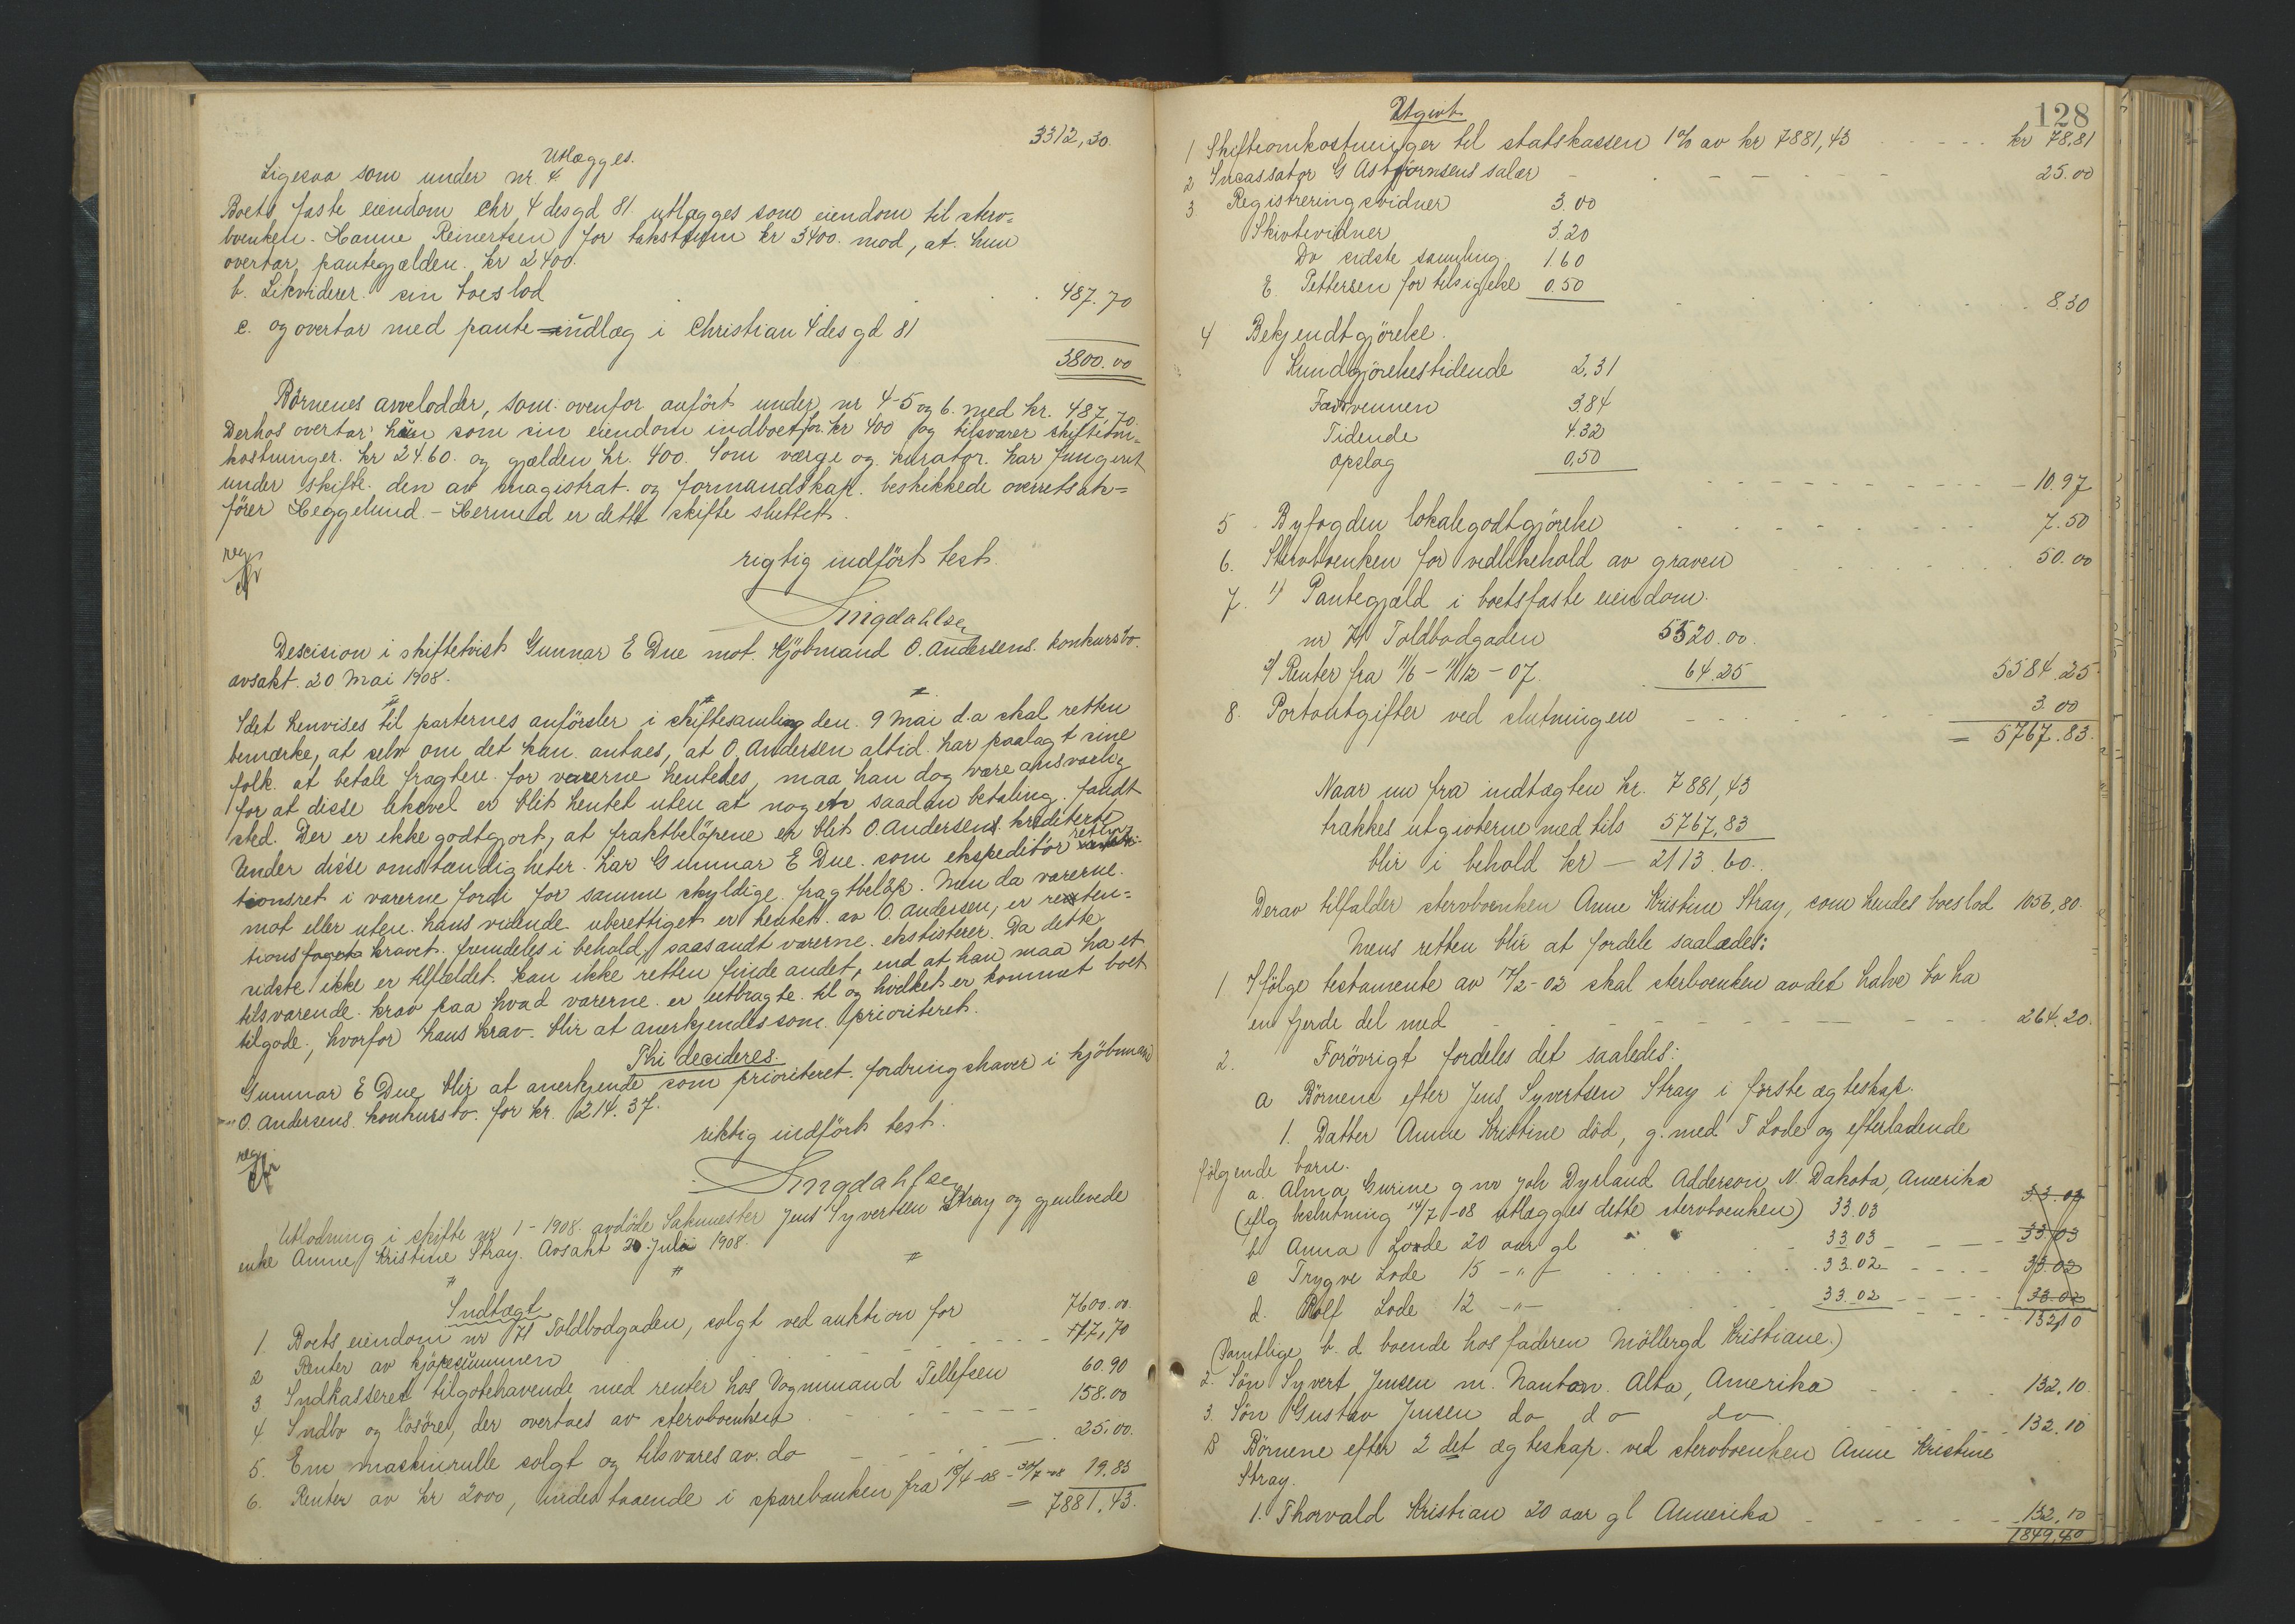 3312,30.
Utlægges.
Ligesaa som under nr. 4.
Boets faste eiendom Chr. 4 des gd 81. utlægges som eiendom til sterv-
boenken. Hanne Reinertsen for takstsum kr 3400. mod, at hun
overtar pantegjælden kr 2400.
b. Likviderer sin boeslod . . . . 487.70
c. og overtar med pante indlæg i Christian 4 des gd 81
3800.00
Börnenes arvelodder, som ovenfor anfört under nr 4-5 og 6. med kr. 487,70.
Derhos overtar hun som sin eiendom indboet for kr 400 og tilsvarer skifteom-
kostninger. kr 24.60. og gjælden kr. 400. Som værge og kurator. har fungert
under skifte den av magistrat og formandskap. beskikkede overretssak-
förer Heggelund. - Hermed er dette skifte sluttet.
reg
rigtig indfört test.
Lingdahlsen
Descision i skiftetvist Gunnar E Due mot. Kjöbmand O. Andersens. konkursbo.
avsakt. 20 Mai 1908.
Idet henvises til parternes anförsler i skiftesamling den 9 Mai d.a skal retten
bemærke, at selv om det kan antaes, at O. Andersen altid har paalagt sine
folk at betale fragten for varerne hentedes, maa han dog være ansvarlig
for at disse likevel er blit hentet uten at nogen saadan betaling fandt
sted. Der er ikke godtgjort, at fraktbelöpene er blit O. Andersens krediterte
Under disse omstændigheter har Gunnar E Due. som ekspeditör reten-
tionsret i varerne fordi for samme skyldige fragtbelöp. Men da varerne.
mot eller uten hans vidende uberettiget er hentet av O. Andersen, er reten-
tions kravet fremdeles i behold, saasandt varerne eksisterer. Da dette
sidste ikke er tilfældet kan ikke retten finde andet, end at han maa ha et
tilsvarende krav paa hvad varerne er utbragte til og hvilket er kommet boet
tilgode., hvorfor hans krav blir at anerkjendes som prioriteret.
Thi decideres.
Gunnar E Due blir at anerkjende som prioriteret. fordringshaver i kjöbmand
O. Andersens konkursbo. for kr. 214.37.
riktig indfört test.
reg
Lingdahlsen
Utlodning i skifte nr 1-1908. avdöde Sakmester Jens Syvertsen Stray og gjenlevede
enke Anne Kristine Stray. Avsakt 20 Juli 1908.
Indtægt
1. Boets eiendom nr 71 Toldbodgaden, solgt ved auktion for 7600.00.
2 Renter av kjöpesummen . . . 17,70
3 Indkasseret tilgotehavende med renter hos Vognmand Tellefsen 60.90
4 Indbo og lösöre, der overtaes av stervboenken 158.00
5. En maskinrulle solgt og tilsvares av. do 25.00.
6. Renter av kr 2000, indestaaende i sparebanken fra 18/4-08 - 20/7-08 19.83
= 7881.43.
128
Utgivt.
1 Skifteomkostninger til statskassen 1% av kr 7881,43 kr 78,81
2 Incassator G Asbjörnsens salær 25.00
3 Registreringsvidner 3.00
Skiftevidner 3.20
Do sidste samling 1.60
E. Pettersen for tilsigelse 0.50 8.30
4 Bekjendtgjörelse.
Kundgjörelsestidende 2.31
Fædrvennen 3.84
Tidende 4.32
Opslag 0,50 10.97
5 Byfogden lokalegodtgjörelse 7.50
6. Stervboenken for vedlikehold av graven 50.00
7. 1) Pantegjæld i boets faste eiendom.
nr 71 Toldbodgaden 5520.00.
2) Renter fra 11/6 - 11/12 - 07. 64.25 5584.25
8. Portoutgifter ved slutningen 3.00
= 5767.83.
Naar nu fra indtægten kr. 7881,43
trækkes utgivterne med tils 5767,83
blir i behold kr — 2113.60.
Derav tilfalder stervboenken Anne Kristine Stray, som hendes boeslod 1056,80.
Mens retten blir at fordele saaledes:
1 Ifölge testamente av 17/2-02 skal sterboenken av det halve bo ha
en fjerde del med 264.20.
2. Forövrigt fordeles det saaledes:
a Börnene efter Jens Syvertsen Stray i förste ægteskap.
1. Datter Anne Kristine död, g. med T Lode og efterladende
fölgende barn.
a. Alma Gurine g nr Joh Dyrland Adderson, N. Dakota, Amerika 33.03
(iflg beslutning 14/7-08 utlægges dette stervboenken) 33.03
b Anna Lode 20 aar gl 33.03 33.03
c Trygve Lode 15 -"- 33.02 33.02
d. Rolf Lode 12 -"- 33.02 33.02
132,10
(samtlige b. d boende hos faderen Möllergd Kristiane.)
2. Sön Syvert Jensen m. Nanton. Alta, Amerika 132.10
3. Sön Gustav Jensen do do do 132.10
B Börnene efter 2 det ægteskap. ved stervboenken Anne Kristine
Stray.
1. Thorvald Kristian 20 aar gl Amerika 132,10
1849,40